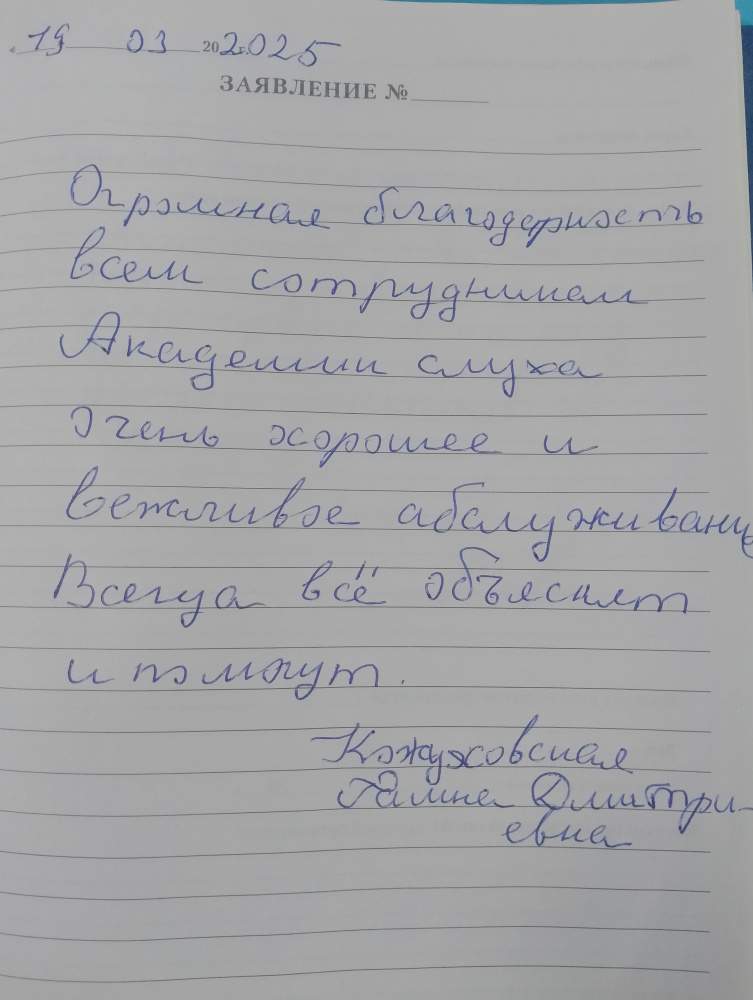 19 03 202025
ЗАЯВЛЕНИЕ №
Огромная благодарность
всем сотрудникам
Академии слуха
очень хорошее и
вежливое абслуживание
Всегда всё объяснят
и помогут.
Кожуховская
Галина Дмитри-
евна